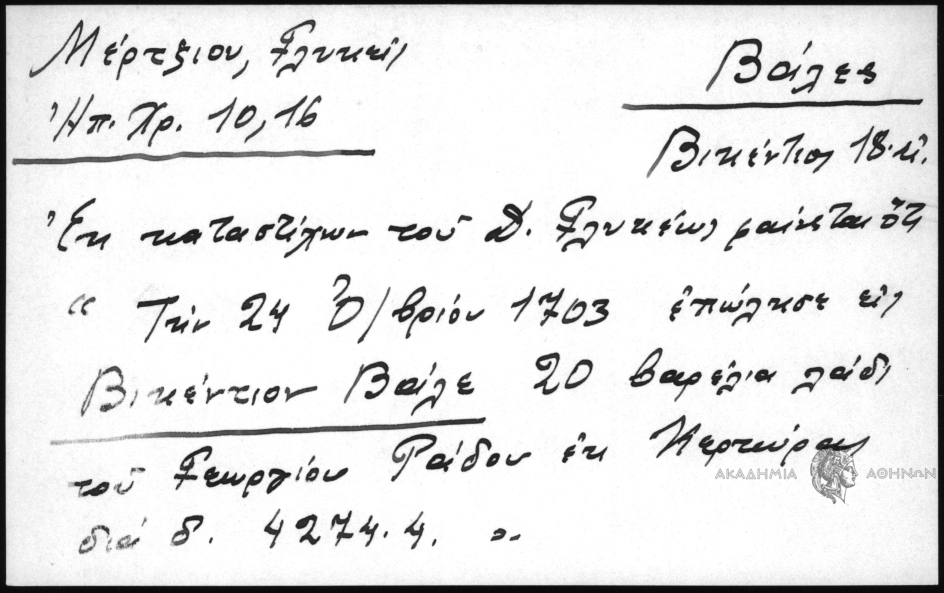 Μέρτζιου, Γλυκεῖς
Βάλες
Ἠπ. Χρ. 10,16
Βικέντιος 18. κῖ.
Ἐκ καταστίχων τοῦ Δ. Γλυκέως φαίνεται ὅτι
“ Τήν 24 Ὀ/βρίου 1703 ἐπώλησε εἰς
Βικέντιον Βάλε 20 βαρέλια λάδι
τοῦ Γεωργίου Ραίδου ἐκ Κερκύρας
διά δ. 4274.4. ”
ΑΚΑΔΗΜΙΑ ΑΘΗΝΩΝ